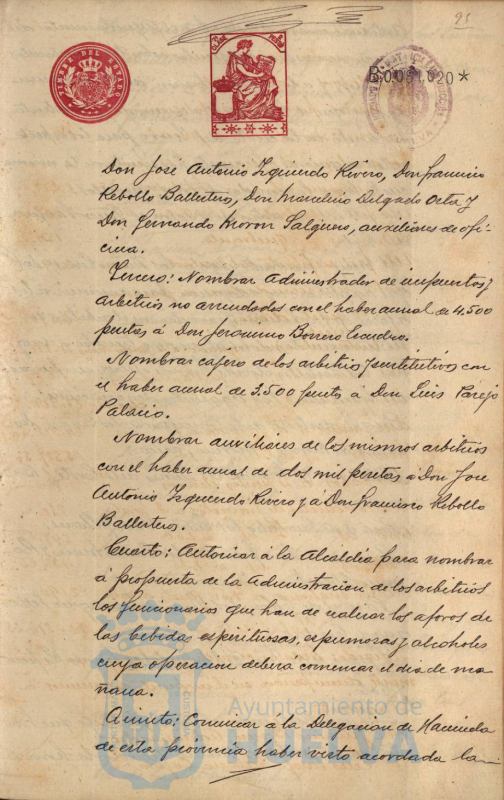 91
TIMBRE DEL ESTADO
B.0.051.020*
Don José Antonio Izquierdo Rivero, Don Francisco
Rebollo Ballestero, Don Marcelino Delgado Orta y
Don Fernando Moron Salguero, auxiliares de ofi-
cina.
Tercero: Nombrar Administrador de impuestos y
arbitrios no arrendados con el haber anual de 4.500
pesetas á Don Jeronimo Borrero
Nombrar cajero de los arbitrios sustitutivos con
el haber anual de 3.500 pesetas á Don Luis Parejo
Palacio.
Nombrar auxiliares de los mismos arbitrios
con el haber anual de dos mil pesetas á Don José
Antonio Izquierdo Rivero y á Don Francisco Rebollo
Ballesteros.
Cuarto: Autorizar á la Alcaldía para nombrar
á propuesta de la Administracion de los arbitrios
los funcionarios que han de realizar los aforos de
las bebidas espirituosas, espumosas y alcoholes
cuya operacion deberá comenzar el dia de ma-
ñana.
Quinto: Comunicar á la Delegacion de Hacienda
de esta provincia haber visto acordada la
Ayuntamiento de
HUELVA